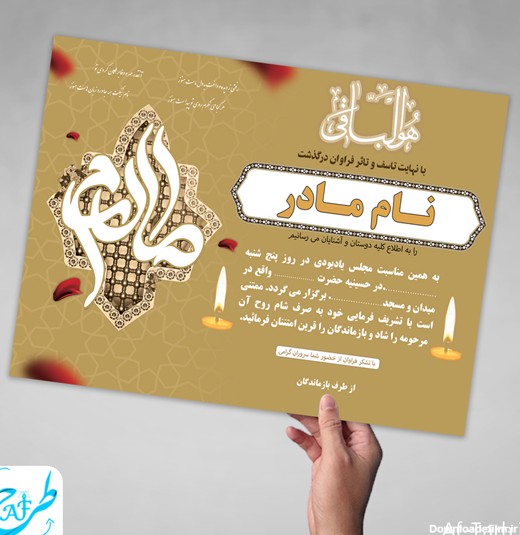 هوالباقی
با نهایت تاسف و تاثر فراوان درگذشت
نام مادر
را به اطلاع کلیه دوستان و آشنایان می رسانیم
به همین مناسبت مجلس یادبودی در روز پنج شنبه
..................در حسینیه حضرت ..............واقع در
میدان و مسجد..................برگزار می گردد. ممتنی
است با تشریف فرمایی خود به صرف شام روح آن
مرحومه را شاد و بازماندگان را قرین امتنان فرمائید.
با تشکر فراوان از حضور شما سروران گرامی
از طرف بازماندگان
مادرم
طرح
AF
Af-Tarh.ir